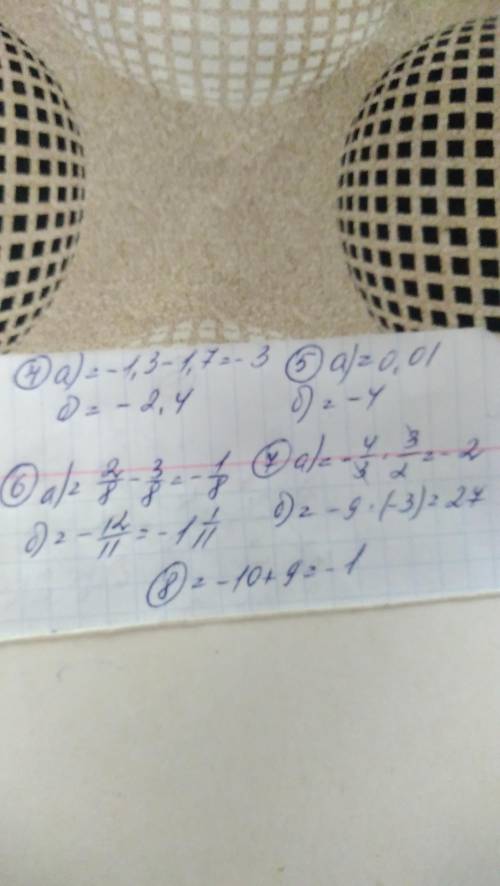 ④ а) = -1,3-1,7=-3
б) = -2,4
⑤ а) = 0,01
б) = -4
⑥ а) = 2/8 - 3/8 = -1/8
б) = -12/11 = -1 1/11
⑦ а) = -4/3 · 3/2 = -2
б) = -9 · (-3) = 27
⑧ = -10+9=-1